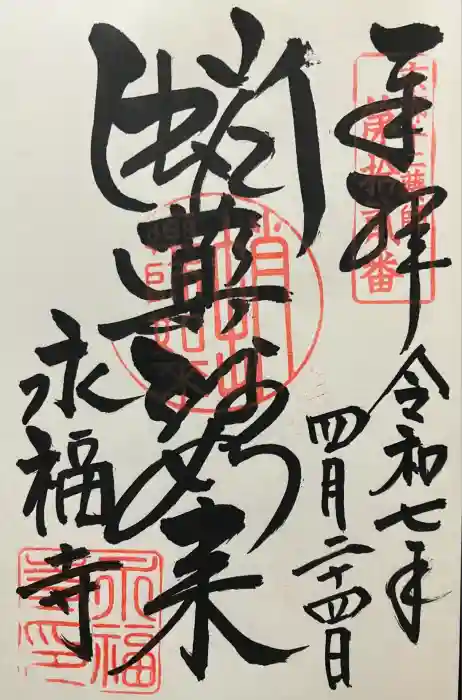 奉拝
第拾貳番
令和七年
四月二十四日
蛸薬師如来
永福寺
永福
寺印